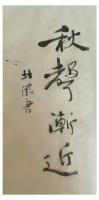 秋聲漸近